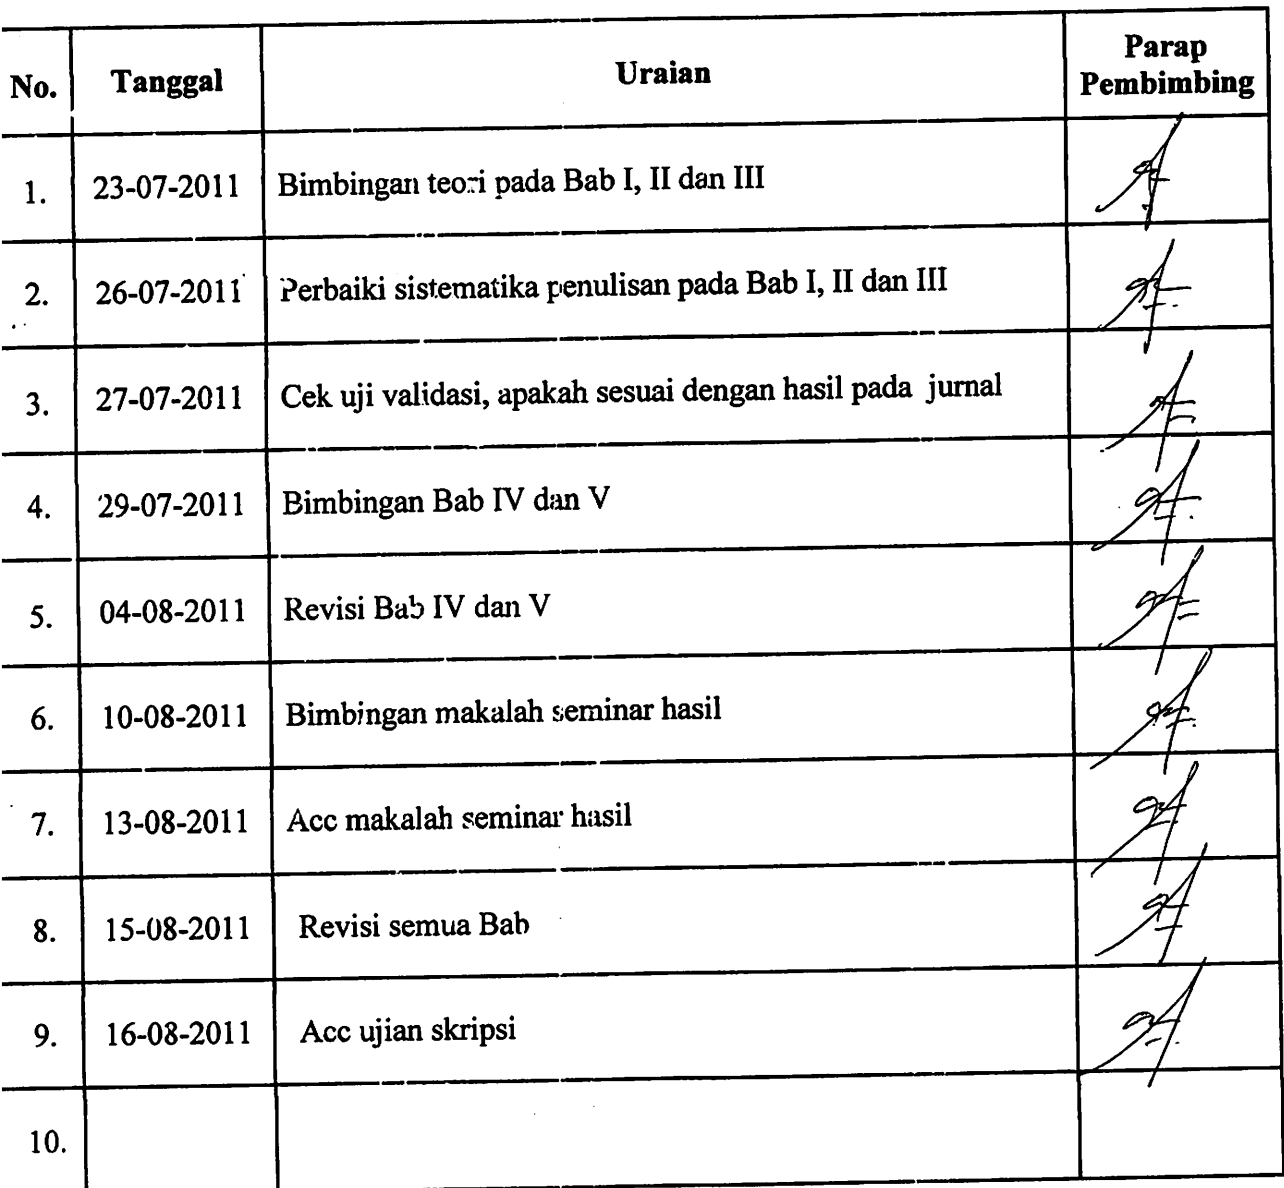 No. Tanggal Uraian Parap
Pembimbing
1. 23-07-2011 Bimbingan teori pada Bab I, II dan III
2. 26-07-2011 Perbaiki sistematika penulisan pada Bab I, II dan III
3. 27-07-2011 Cek uji validasi, apakah sesuai dengan hasil pada jurnal
4. 29-07-2011 Bimbingan Bab IV dan V
5. 04-08-2011 Revisi Bab IV dan V
6. 10-08-2011 Bimbingan makalah seminar hasil
7. 13-08-2011 Acc makalah seminar hasil
8. 15-08-2011 Revisi semua Bab
9. 16-08-2011 Acc ujian skripsi
10.